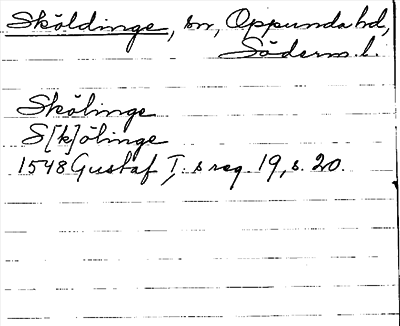 Sköldinge, sn, Oppunda hd,
Söderm. l.
Skölinge
S[k]ölinge
1548 Gustaf I:s reg. 19, s. 20.